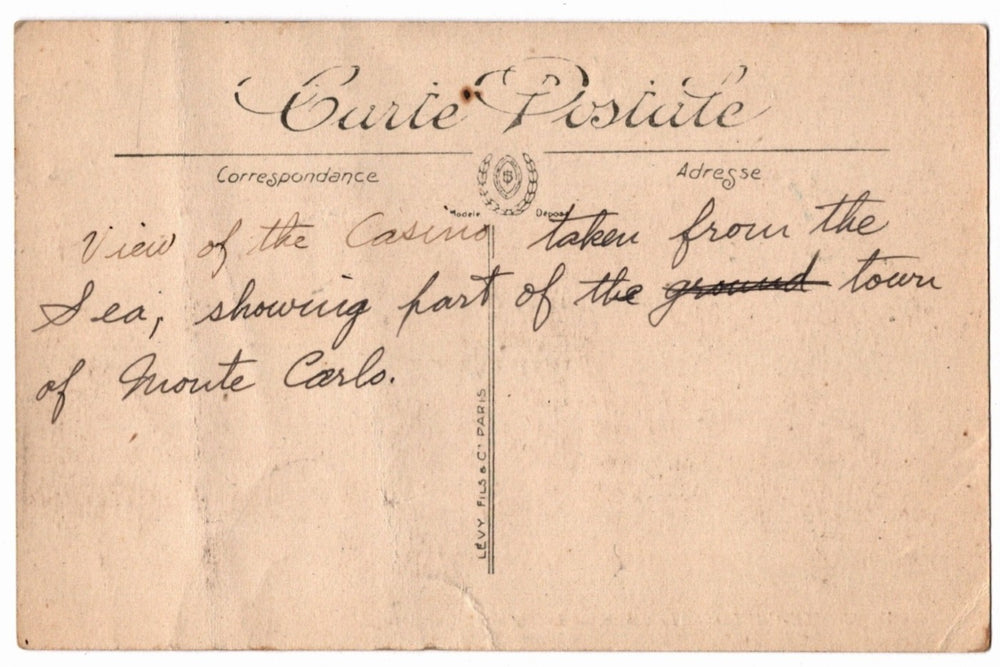 Carte Postale
Correspondance
Adresse
Modèle Déposé
View of the Casino taken from the
Sea, showing part of the ground town
of Monte Carlo.
LÉVY FILS & Cⁱᵉ PARIS